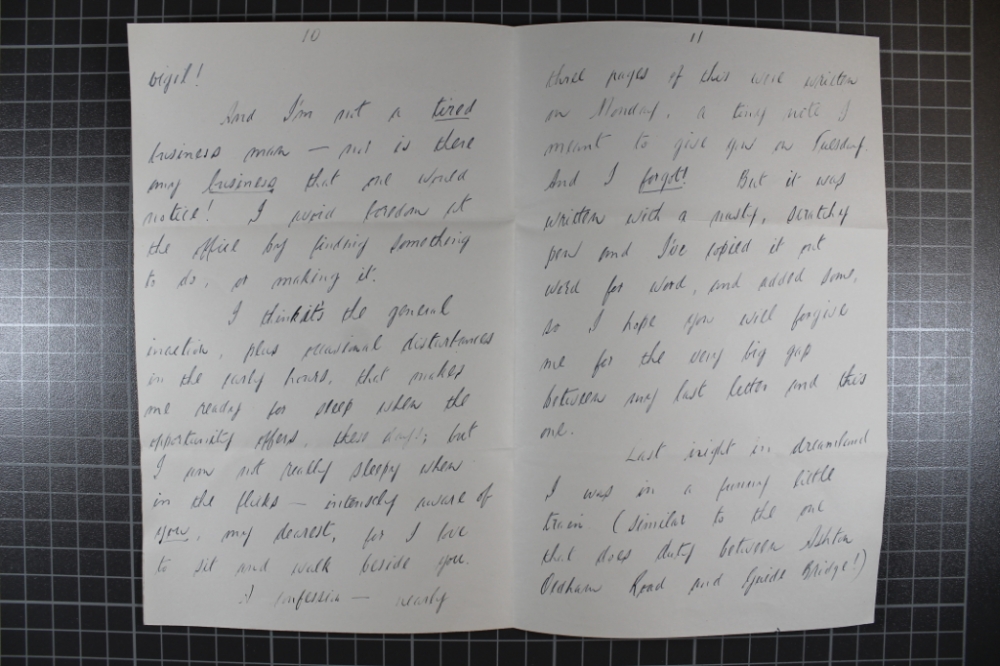 10
vigil!
And I'm not a tired
business man — nor is there
any business that one would
notice! I avoid boredom at
the office by finding something
to do, or making it.
I think it's the general
inaction, plus occasional disturbances
in the early hours, that makes
me ready for sleep when the
opportunity offers, these days; but
I am not really sleepy when
in the flicks — intensely aware of
you, my dearest, for I love
to sit and walk beside you.
A confession — nearly
11
three pages of this were written
on Monday, a tiny note I
meant to give you on Tuesday.
And I forgot! But it was
written with a nasty, scratchy
pen and I've copied it out
word for word, and added some,
so I hope you will forgive
me for the very big gap
between my last letter and this
one.
Last night in dreamland
I was in a funny little
train (similar to the one
that does duty between Ashton
Oldham Road and Guide Bridge!)